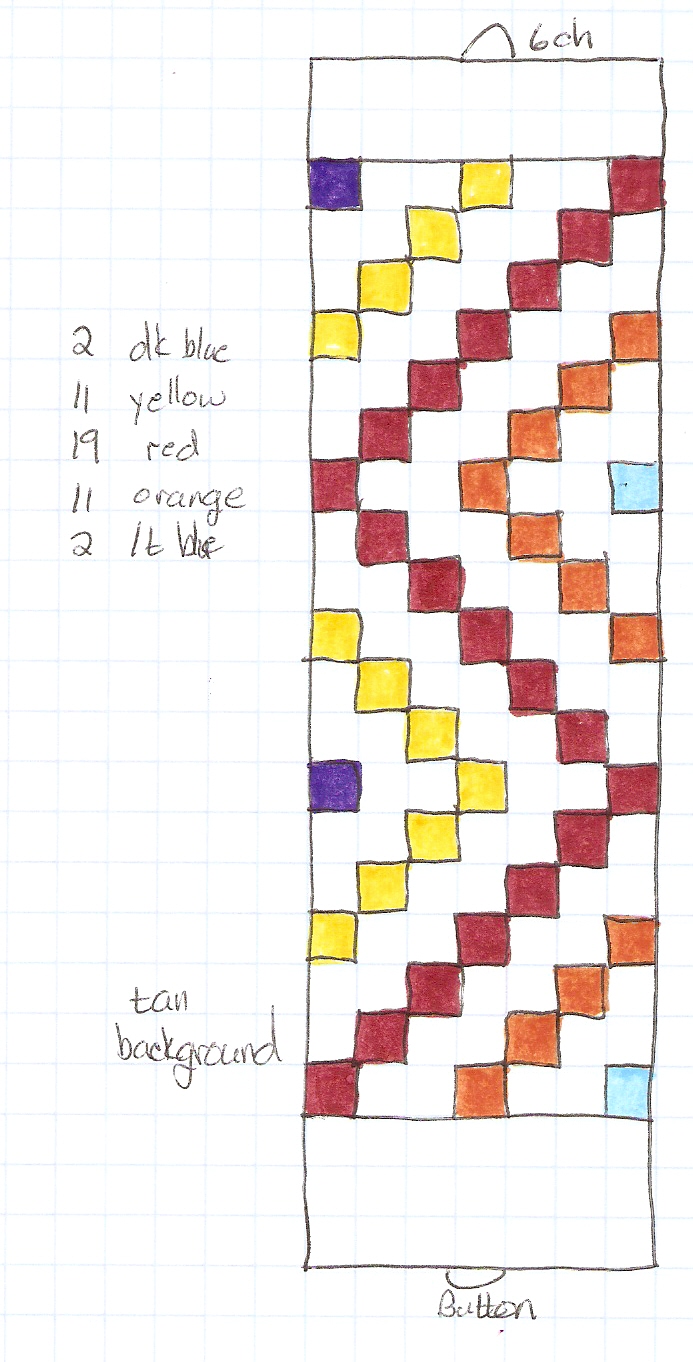 6ch
2 dk blue
11 yellow
19 red
11 orange
2 lt blue
tan
background
Button